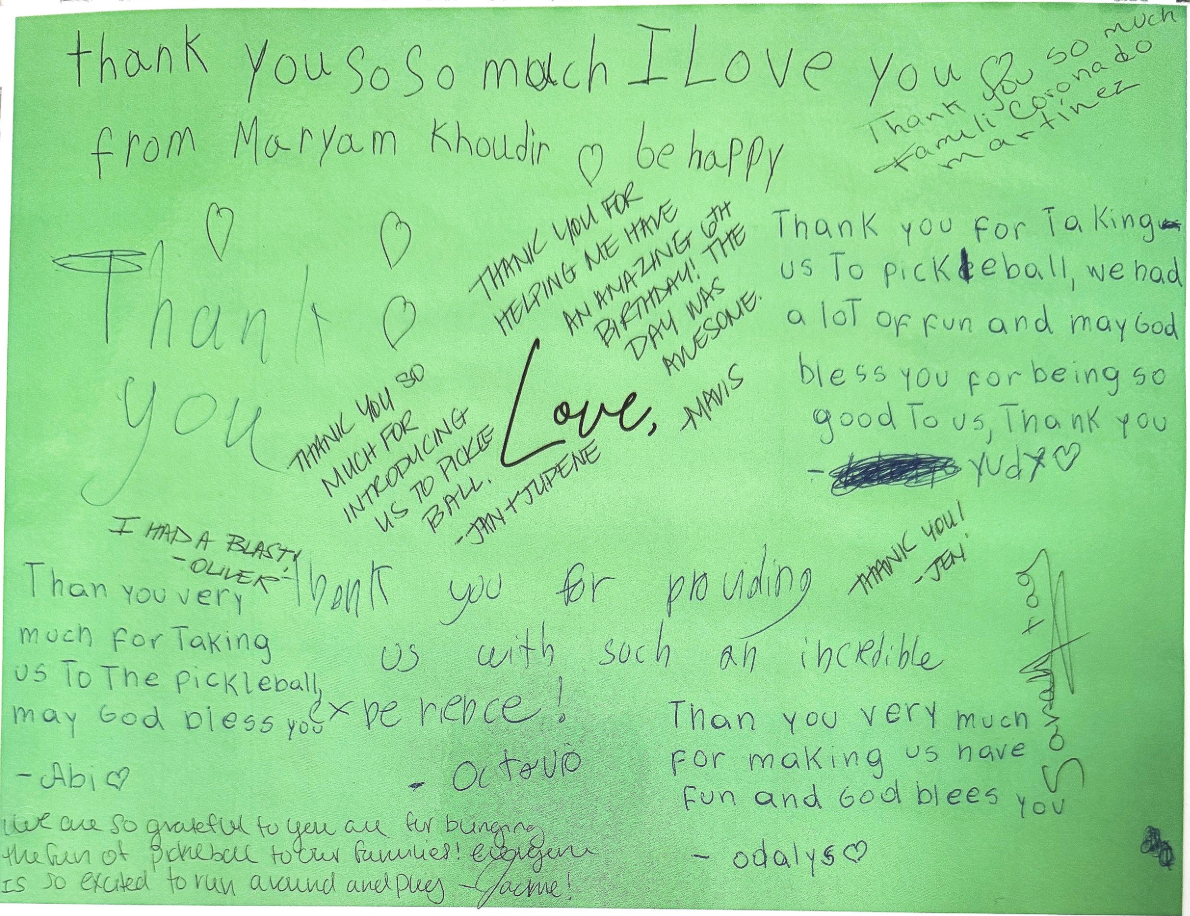 thank you so so much I Love you ♡
from Maryam Khoudir ♡ be happy
Thank you so much
Familí Coronado
martínez
Thank
you
THANK YOU FOR
HELPING ME HAVE
AN AMAZING 6TH
BIRTHDAY! THE
DAY WAS
AWESOME.
-MAVIS
Thank you for Taking
us To pickleball, we had
a loT of fun and may God
bless you for being so
good To us, Thank you
- yudy♡
THANK YOU SO
MUCH FOR
INTRODUCING
US TO PICKLE
BALL.
-JAN +
Love,
I HAD A BLAST!
-OLIVER
THANK YOU!
-JEN
Than you very
much for Taking
us To The pickleball,
may God bless you
-Abi♡
Thank you for providing
us with such an incredible
experience!
- Octavio
Savah
Than you very much
For making us have
Fun and God blees you
- odalys♡
We are so grateful to you all for bringing
the fun of pickleball to our families! everyone
Is so excited to run around and play -